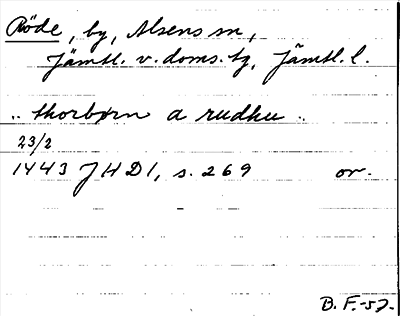 Röde, by, Alsens sn,
Jämtl. v. doms. tg, Jämtl. l.
.. thorbørn a rudhu ..
23/2
1443 JHD1, s. 269 or.
B. F.-57.